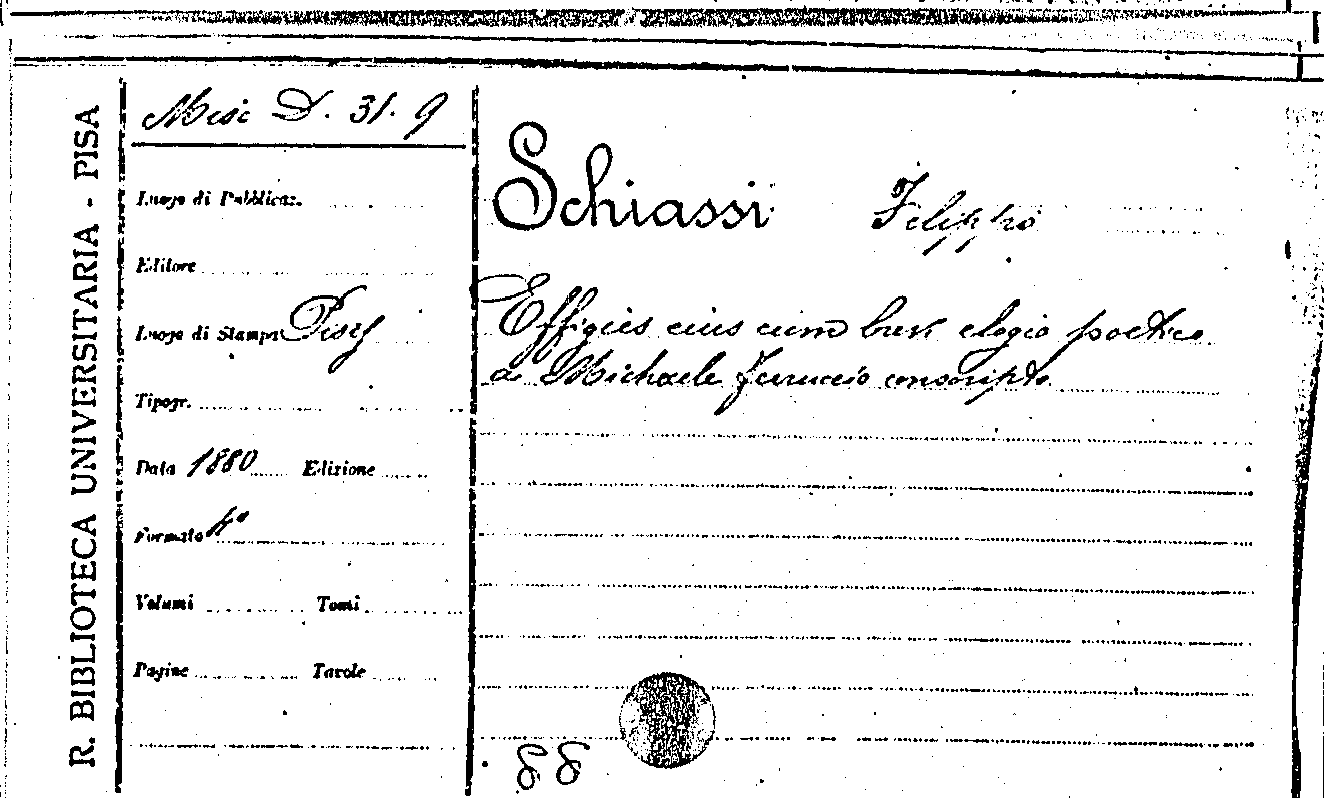 R. BIBLIOTECA UNIVERSITARIA - PISA
Misc D. 31. 9
Luogo di Pubblicaz.
Editore
Luogo di Stampa Pisis
Tipogr.
Data 1880 Edizione
Formato 4°
Volumi Tomi
Pagine Tavole
Schiassi Filippo
Effigies eius cum brevi elogio poetico
a Michaele Ferruccio conscripto
88